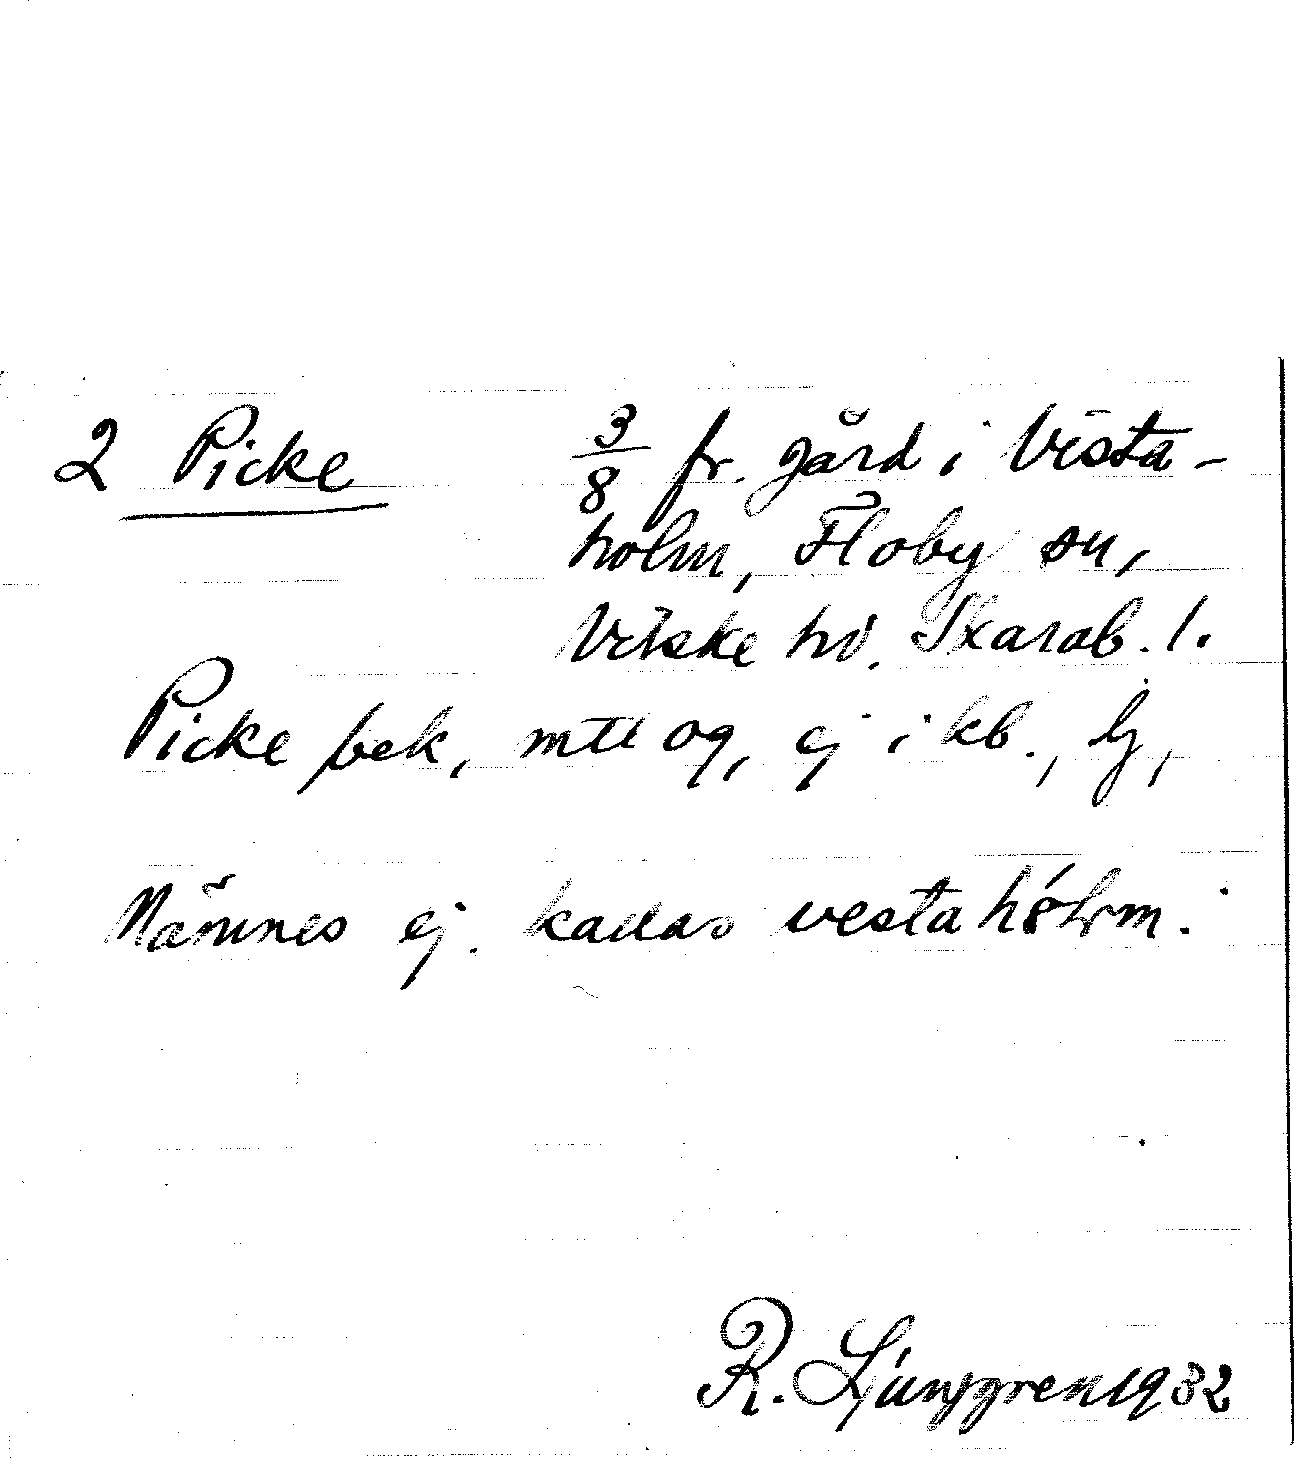 2 Picke 3/8 fr. gård i Vista-
holm, Floby sn,
Vilske hd. Skarab. l.
Picke bek, mtl og, ej i kb., lj,
Nämnes ej. kallas vestahólm.
R. Ljunggren 1932